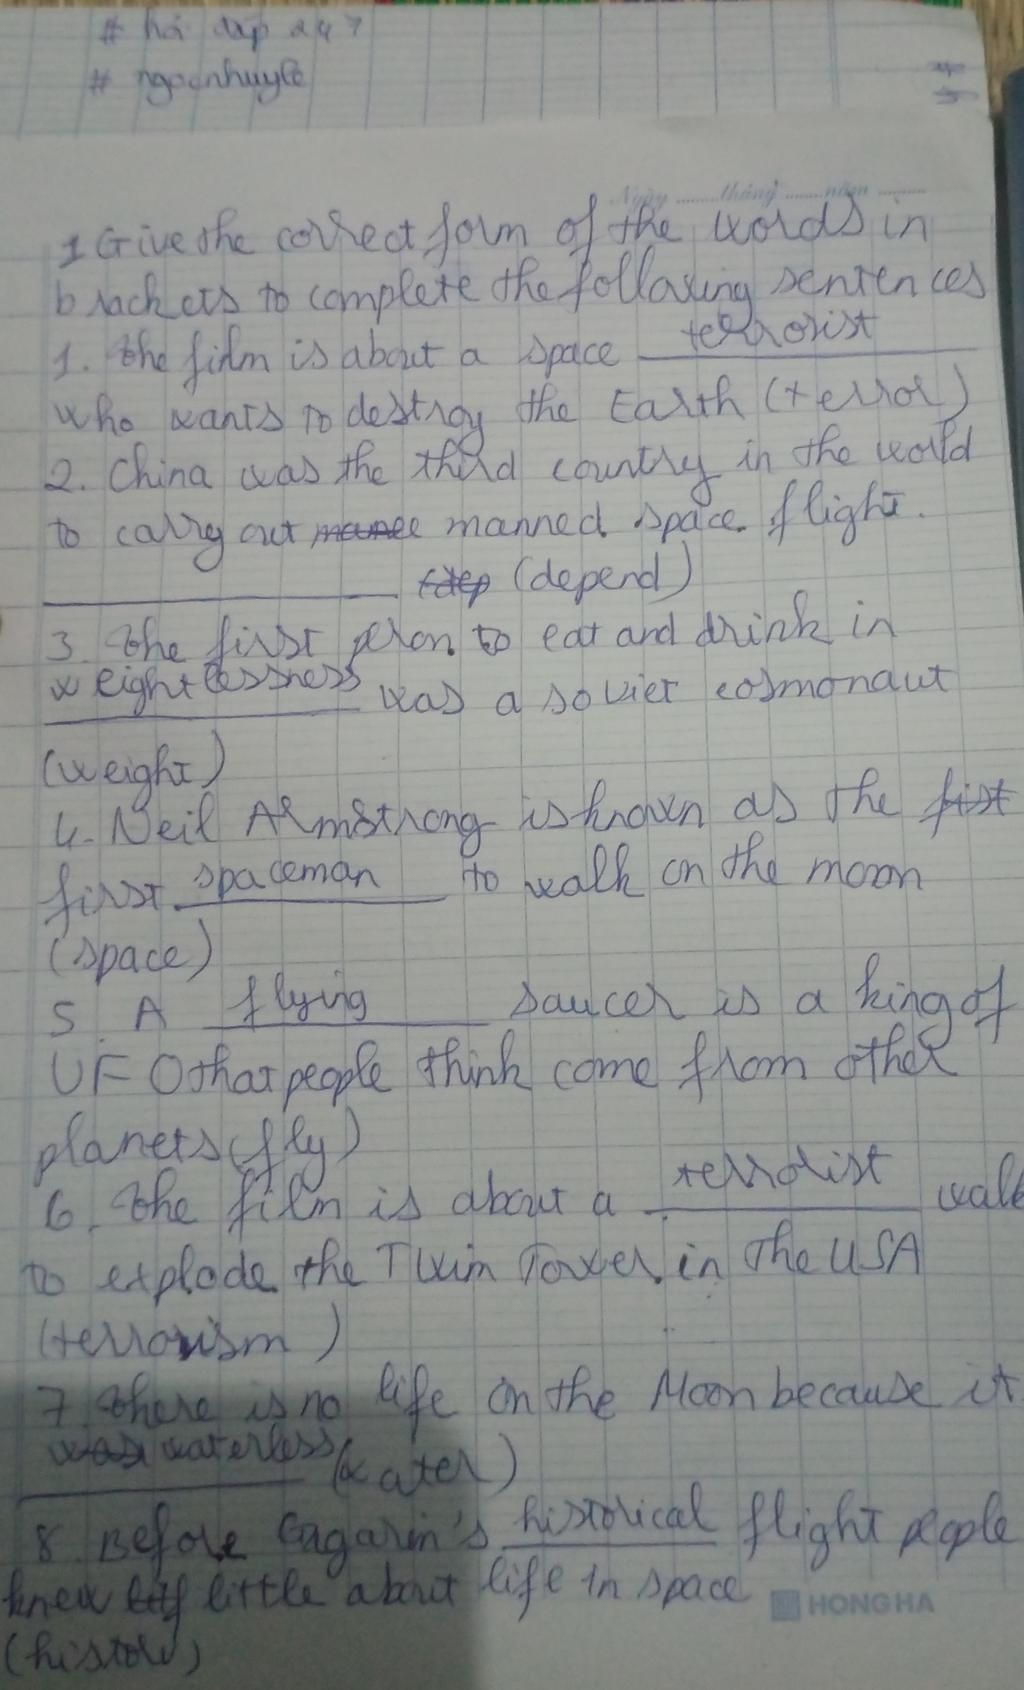 # hỏi đáp 247
# ngocnhuyle
Ngày ........ tháng ...... năm ........
1 Give the correct form of the words in
brackets to complete the following sentences
1. The film is about a space terrorist
who wants to destroy the Earth (terror)
2. China was the third country in the world
to carry out manned space flight.
(depend)
3. The first peron to eat and drink in
weightlessness was a soviet cosmonaut
(weight)
4. Neil Armstrong is known as the first
first spaceman to walk on the moon
(space)
5 A flying saucer is a king of
UFO that people think come from other
planets (fly)
6. The film is about a terrorist
to explode the Twin Tower in the USA
(terrorism)
7 There is no life on the Moon because it
was waterless (water)
8 Before Gagarin's historical flight people
knew little about life in space
HONG HA